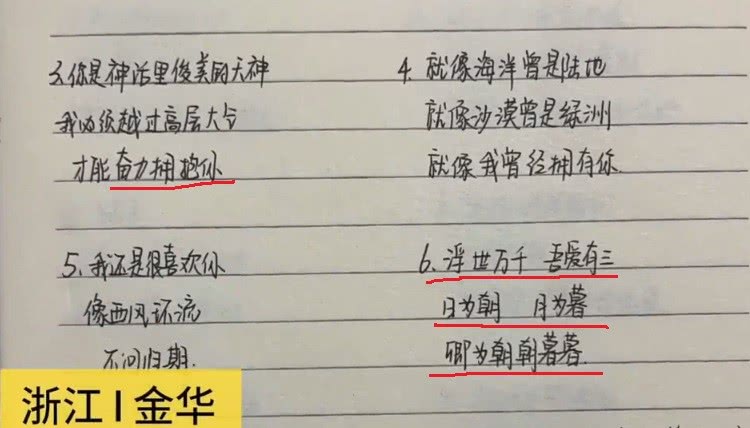 3.你是神话里俊美的天神
我必须越过高层大气
才能奋力拥抱你
4. 就像海洋曾是陆地
就像沙漠曾是绿洲
就像我曾经拥有你.
5.我还是很喜欢你
像西风环流
不问归期.
6.浮世万千 吾爱有三
日为朝 月为暮
卿为朝朝暮暮.
浙江 | 金华